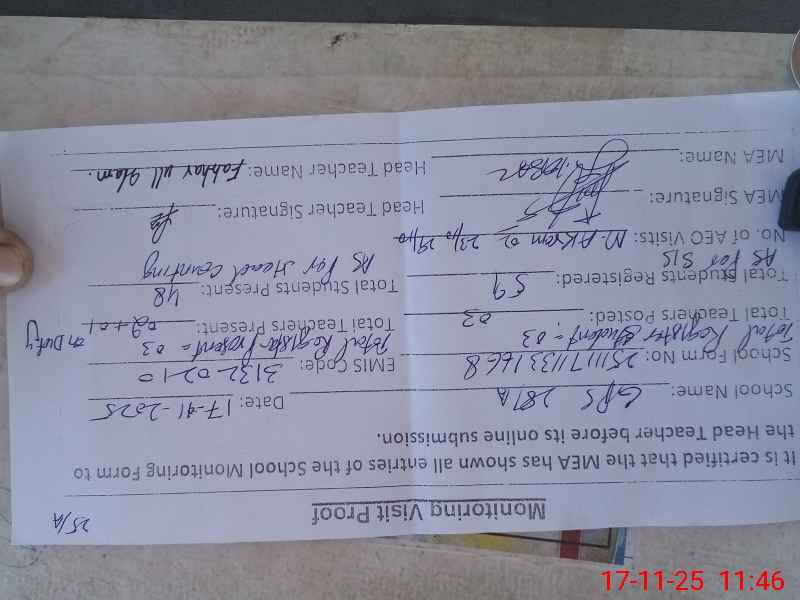 25/A
Monitoring Visit Proof
It is certified that the MEA has shown all entries of the School Monitoring Form to
the Head Teacher before its online submission.
School Name: GPS 281/A Date: 17-11-2025
School Form No: 25111711331668 EMIS Code: 31320210
Total Register Student = 03 Total Register Present = 03
Total Teachers Posted: 03 Total Teachers Present: 02+01 on Duty
Total Students Registered: 59 Total Students Present: 48
AS Per SIS AS Per Head Counting
No. of AEO Visits: M. Akram 02 23/10, 29/10
MEA Signature: Head Teacher Signature:
MEA Name: Head Teacher Name: Fakhar ull Islam.
17-11-25 11:46